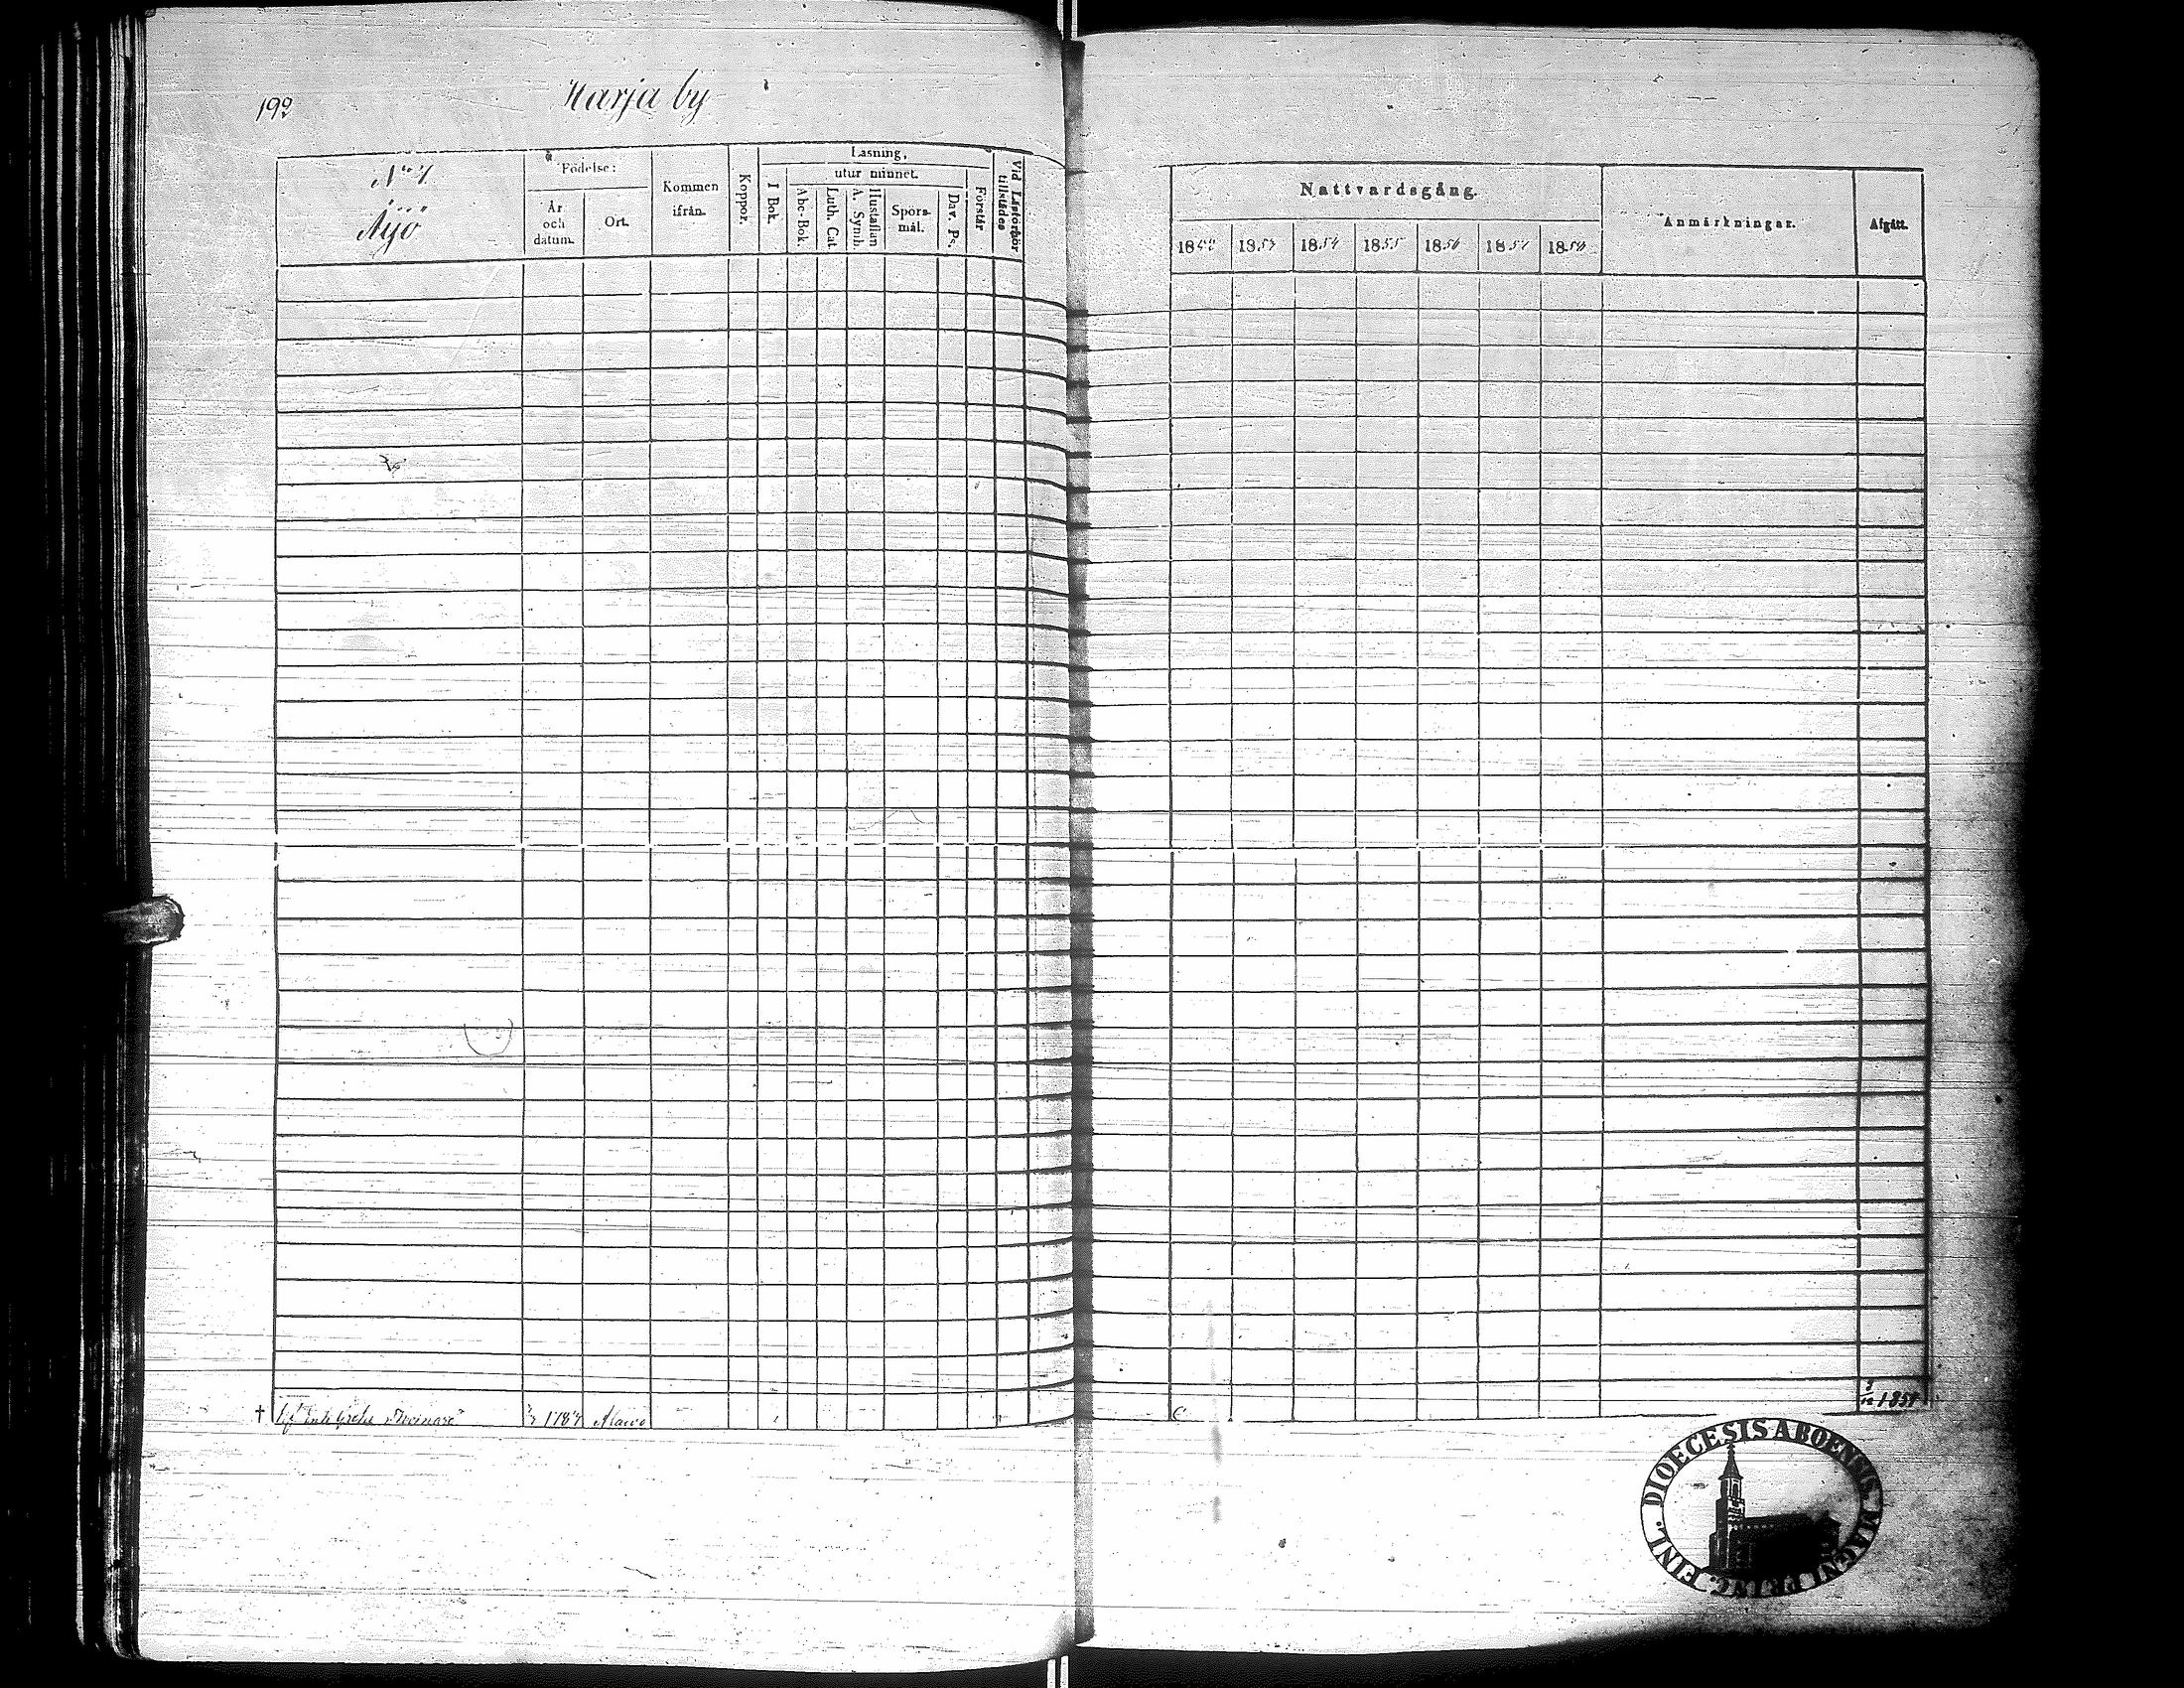 192
Harja by
No 4.
Äijö
Födelse:
År
och
datum.
Ort.
Kommen
ifrån.
Koppor.
Läsning,
I Bok.
utur minnet.
Abc-Bok.
Luth. Cat.
Hustaflan
A. Symb.
Spörs-
mål.
Dav. Ps.
Förstår
Vid Läsförhör
tillstädes
† Enk. 1784 Alavo
Nattvardsgång.
1852 1853 1854 1855 1856 1857 1858
Anmärkningar.
Afgått.
1854
DIOECESIS ABOENSIS. MAGNI PRINC. FINL.